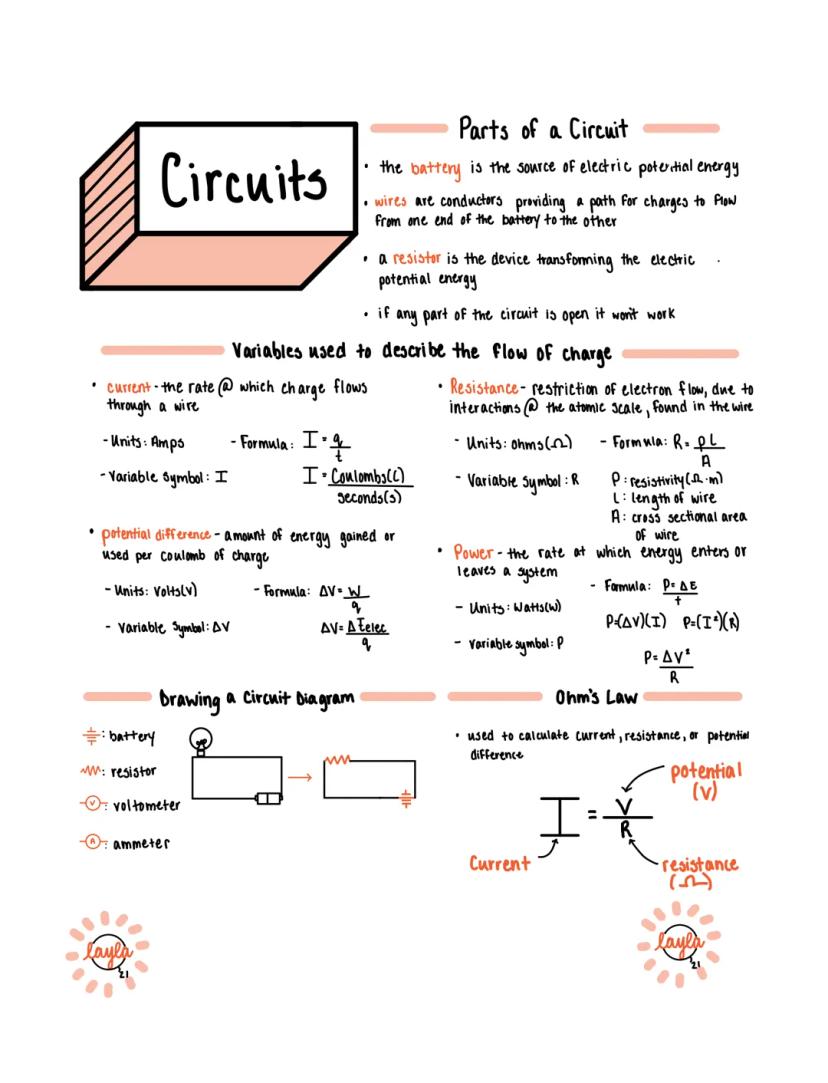 Circuits
Parts of a Circuit
• the battery is the source of electric potential energy
• wires are conductors providing a path for charges to flow
from one end of the battery to the other
• a resistor is the device transforming the electric
potential energy
• if any part of the circuit is open it won't work
Variables used to describe the flow of charge
• current - the rate @ which charge flows
through a wire
- Units: Amps
- Formula: I = q/t
- Variable Symbol: I
I = Coulombs(C)/seconds(s)
• potential difference - amount of energy gained or
used per coulomb of charge
- Units: Volts(V)
- Formula: ΔV = W/q
- Variable Symbol: ΔV
ΔV = ΔEelec/q
• Resistance - restriction of electron flow, due to
interactions @ the atomic scale, found in the wire
- Units: ohms(Ω)
- Formula: R = ρL/A
- Variable Symbol: R
ρ: resistivity(Ω·m)
L: length of wire
A: cross sectional area
of wire
• Power - the rate at which energy enters or
leaves a system
- Formula: P = ΔE/t
- Units: Watts(W)
P=(ΔV)(I) P=(I²)(R)
- Variable symbol: P
P = ΔV²/R
Drawing a Circuit Diagram
: battery
: resistor
V : voltometer
A : ammeter
Ohm's Law
• used to calculate current, resistance, or potential
difference
potential
(V)
I = V/R
Current
resistance
(Ω)
layla
'21
layla
'21